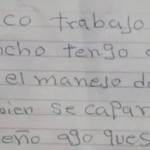 co trabajo
cho tengo
el manejo d
bien se capar
eño ago ques